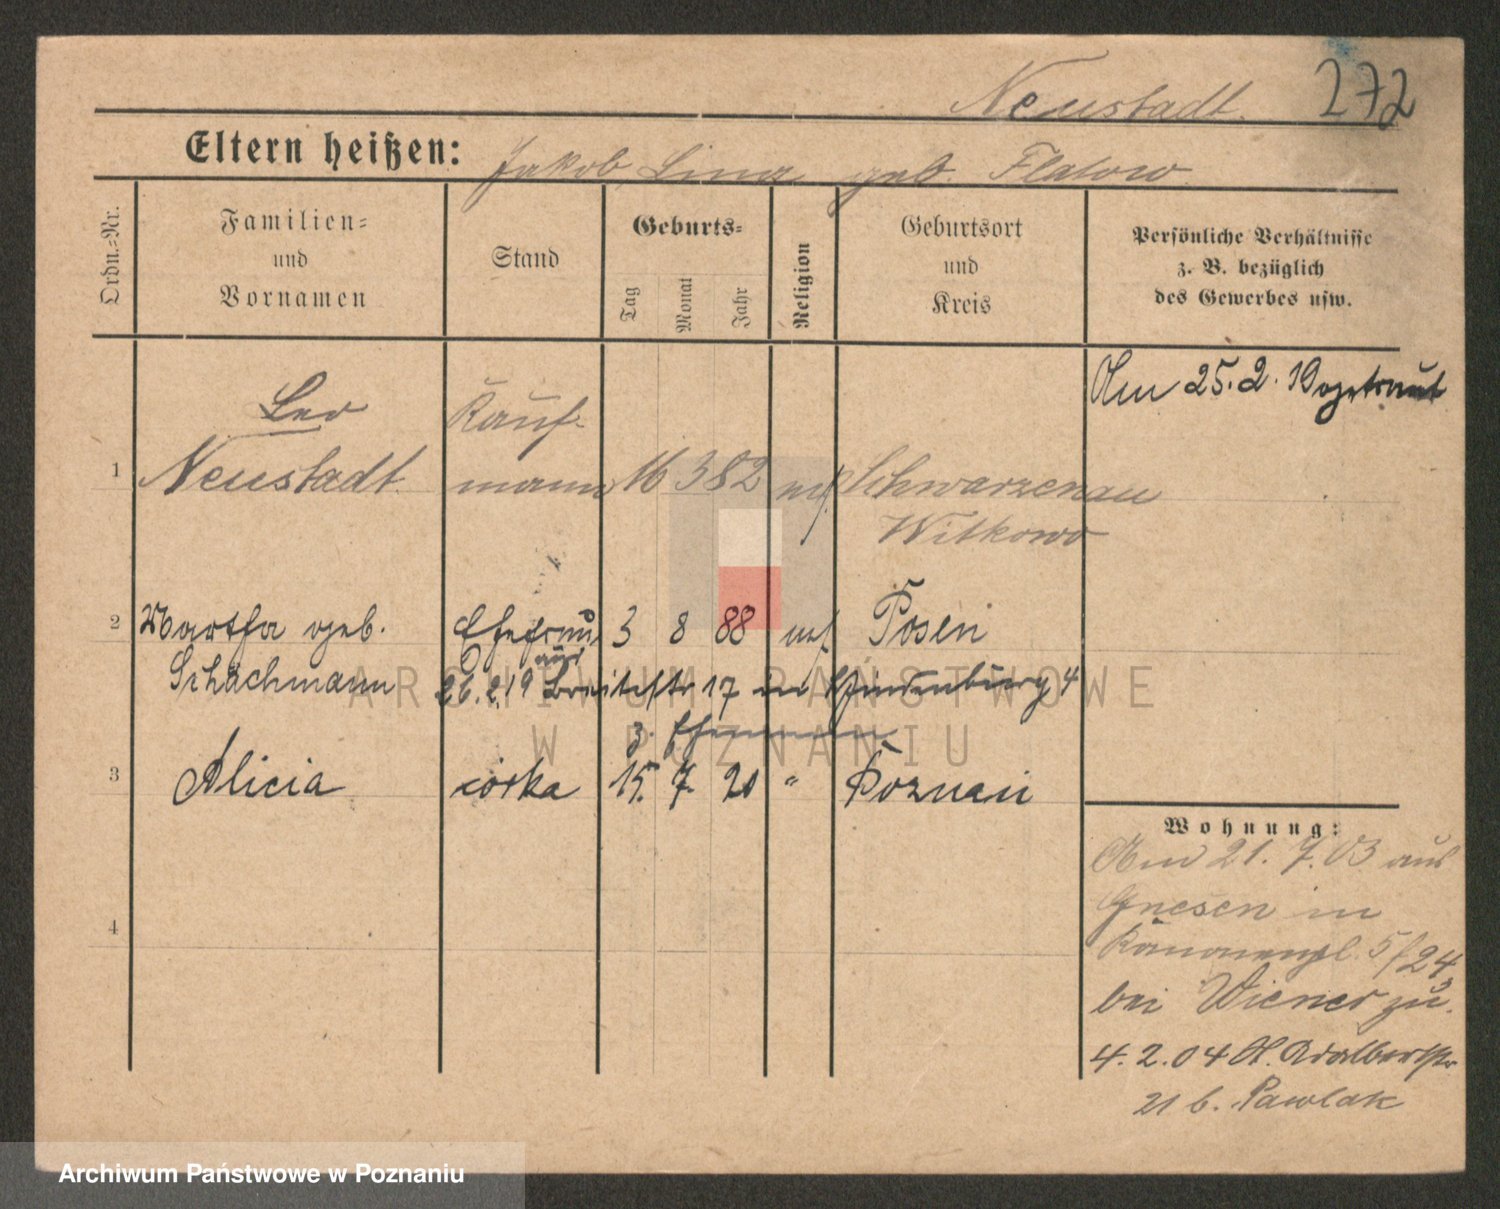 Neustadt. 272
Eltern heißen: Jakob, Lina geb. Flatow
Ordn.=Nr.
Familien=
und
Vornamen
Stand
Geburts=
Tag
Monat
Jahr
Religion
Geburtsort
und
Kreis
Persönliche Verhältnisse
z. B. bezüglich
des Gewerbes usw.
Am 25. 2. 19 getraut
Leo Kauf-
1 Neustadt. mann 16 3 82 mos. Schwarzenau
Witkowo
2 Martha geb. Ehefrau 3 8 88 mos. Posen
Schachmann
aus
26.2.19 Breitestr 17 in Hindenburg 4
z. Ehemann
3 Alicia córka 15. 7. 20 " Poznań
4
Wohnung:
Am 21. 7. 03 aus
Gnesen in
Kanonenpl. 5/24
bei Wiener zu.
4. 2. 04 A. Adalbertstr
21 b. Pawlak
ARCHIWUM PAŃSTWOWE
W POZNANIU
Archiwum Państwowe w Poznaniu